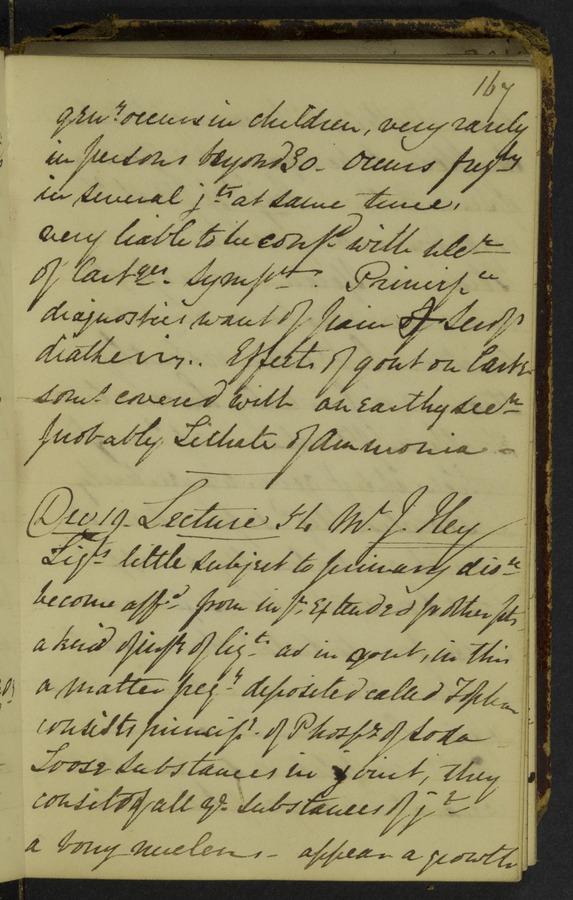 167
genly occurs in children, very rarely
in persons beyond 30 - occurs freqly
in several jts at same time,
very liable to be confd with ulcn
of Cartges sympts. Princip
diagnostics want of pain & Scrof
diathesis.. Effects of gout on Carte
somt covered with an earthy secn
probably Lithate of Ammonia -
Dec 19. Lecture 34 Mr J. Hey
Ligts little subject to primary disn
become affd from infn extended fr other pts
a kind of infn of ligt as in gout, in this
a matter freqy deposited called Tophan
consists princips of Phospt of Soda
Loose substances in joint, they
consist of all ye substances of jt
a bony nucleus - appear a growth